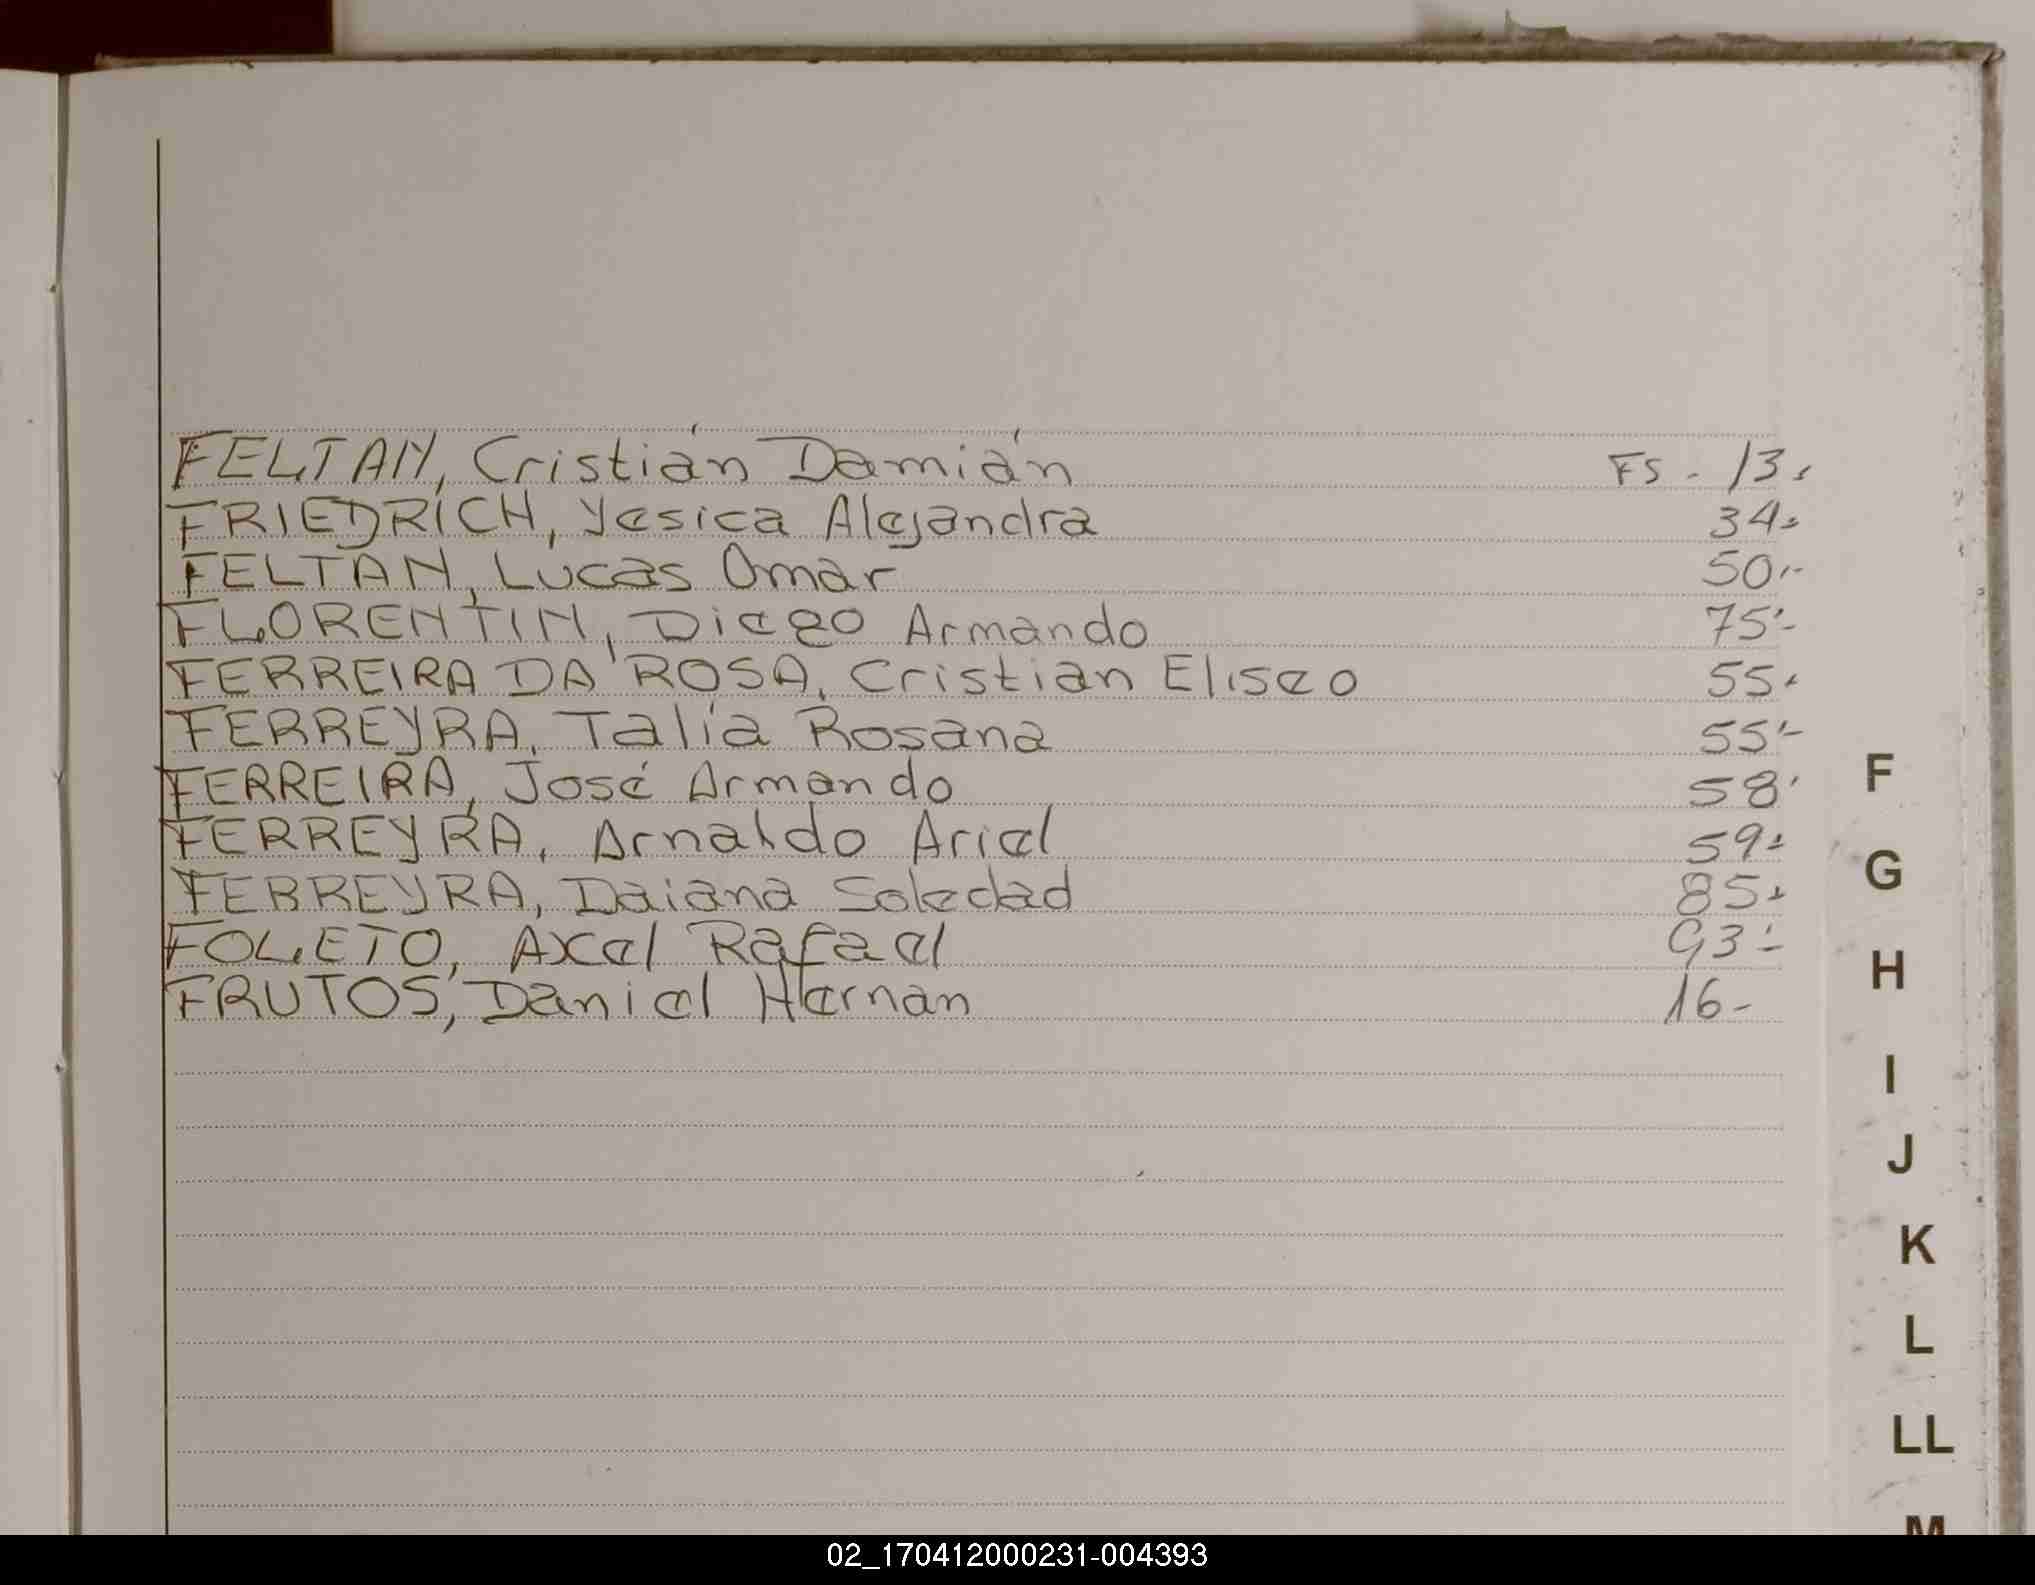 FELTAN, Cristián Damián FS - 13.
FRIEDRICH, Yesica Alejandra 34.
FELTAN, Lucas Omar 50.-
FLORENTIN, Diego Armando 75.-
FERREIRA DA ROSA, Cristian Eliseo 55.
FERREYRA, Talía Rosana 55.-
FERREIRA, José Armando 58.
FERREYRA, Arnaldo Ariel 59.
FERREYRA, Daiana Soledad 85.
FOLETO, Axel Rafael 93.-
FRUTOS, Daniel Hernan 16-
F
G
H
I
J
K
L
LL
M
02_170412000231-004393